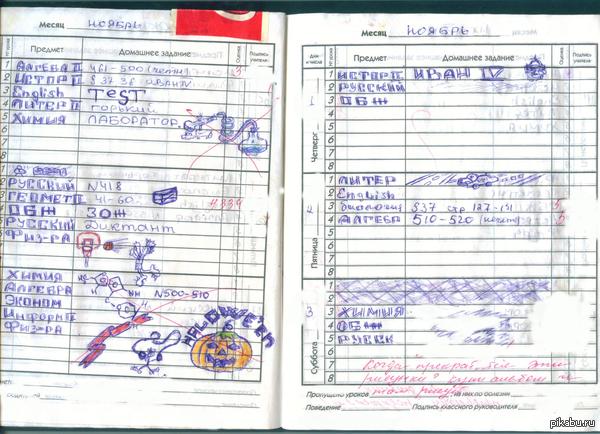 Месяц НОЯБРЬ
Предмет Домашнее задание Оценка Подпись учителя
1 АЛГЕБРА 461-500 (четн) 5
2 ИСТОР § 37 38 ИВАН IV
3 English TEST
4 ЛИТЕР ГОРЬКИЙ
5 ХИМИЯ ЛАБОРАТОР.
6
7
8
1
2 РУССКИЙ N418
3 ГЕОМЕТ 41-60
ОБЖ ЗОЖ
РУССКИЙ Диктант
ФИЗ-РА
ХИМИЯ
АЛГЕБРА N500-510
ЭКОНОМ
ИНФОРМ
ФИЗ-РА
HALLOWE'EN
Месяц НОЯБРЬ
Предмет Домашнее задание Оценка Подпись учителя
Четверг 1
1 ИСТОР ИВАН IV
2 РУССКИЙ
3 ОБЖ
4
5
6
7
8
Пятница 2
1 ЛИТЕР
2 English
3 биология §37 стр 127-131 5
4 АЛГЕБР 510-520 (нечет) 5
5
6
7
8
Суббота 3
1
2
3 ХИМИЯ
4 ОБЖ
5 РУССК
6
7 Когда эти
8 рисунки купи альбом и
там рисуй
Пропущено уроков из них по болезни
Поведение Подпись классного руководителя
pikabu.ru